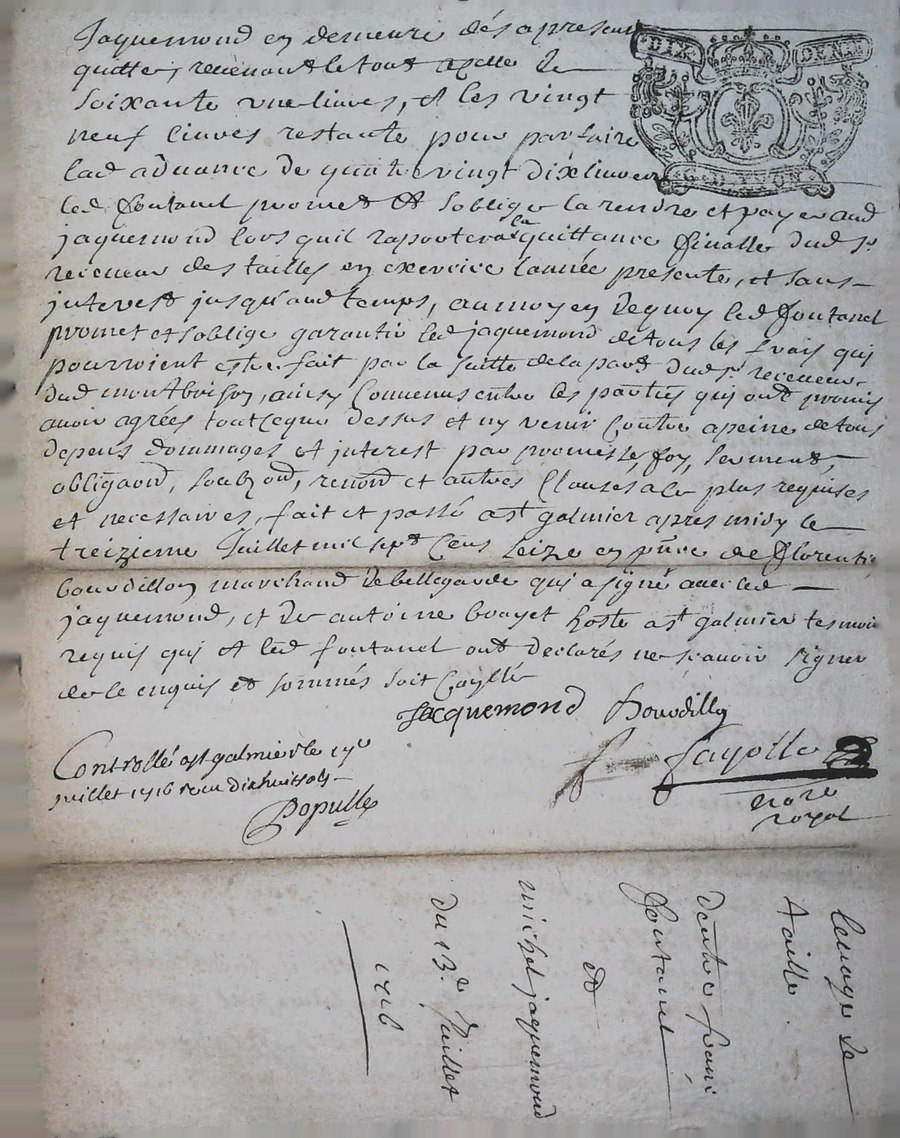 Jaquemond en demeure dés apresent
quitte, revenant le tout a celle de
soixante une livres, et les vingt
neuf livres restante pour parfaire
lad advance de quatre vingt dix livres
led fontanel promet et soblige la rendre et payer aud
jaquemond lors quil raportera la quittance finalle dud sr
receveur des tailles en exercice lannée presente, et sans
interest jusquaud temps, au moyen dequoy led fontanel
promet et soblige garantir led jaquemond de tous les frais qui
pourroient estre fait par la suitte de la part dud sr receveur
dud montbrison, ainsy convenus entre les parties qui ont promis
avoir agrées tout ceque dessus et ny venir contre a peine de tous
depens dommages et interest par promesse, foy, serment,
obligaond, soubzond, renond et autres clauses a ce plus requises
et necessaires, fait et passé a st galmier apres midy le
treizieme Juillet mil sept cens seize en pnce de florentin
bourdillon marchand de bellegarde qui a signé avec led
jaquemond, et de antoine bouyet hoste a st galmier tesmoins
requis qui et led fontanel ont declarés ne scavoir signer
de ce enquis et sommés soit controllé
Jacquemond Bourdillon
fayolle
nore
royal
Controllé a st galmier le 17e
Juillet 1716 receu dix huit sols
Populle
DIX DENIE
G. D. LYON
levage de
taille
dentre franc
fontanel
et
michel jaquemond
du 13e Juillet
1716